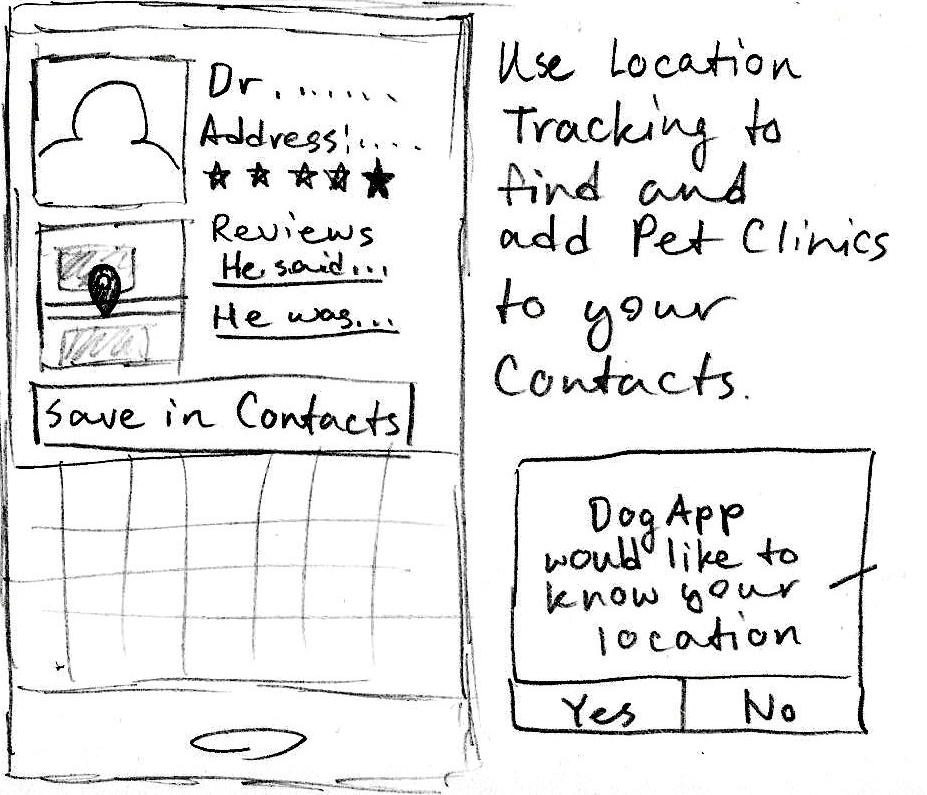 Dr.......
Address:....
Reviews
He said...
He was...
Save in Contacts
Use Location
Tracking to
find and
add Pet Clinics
to your
Contacts.
Dog App
would like to
know your
location
Yes
No